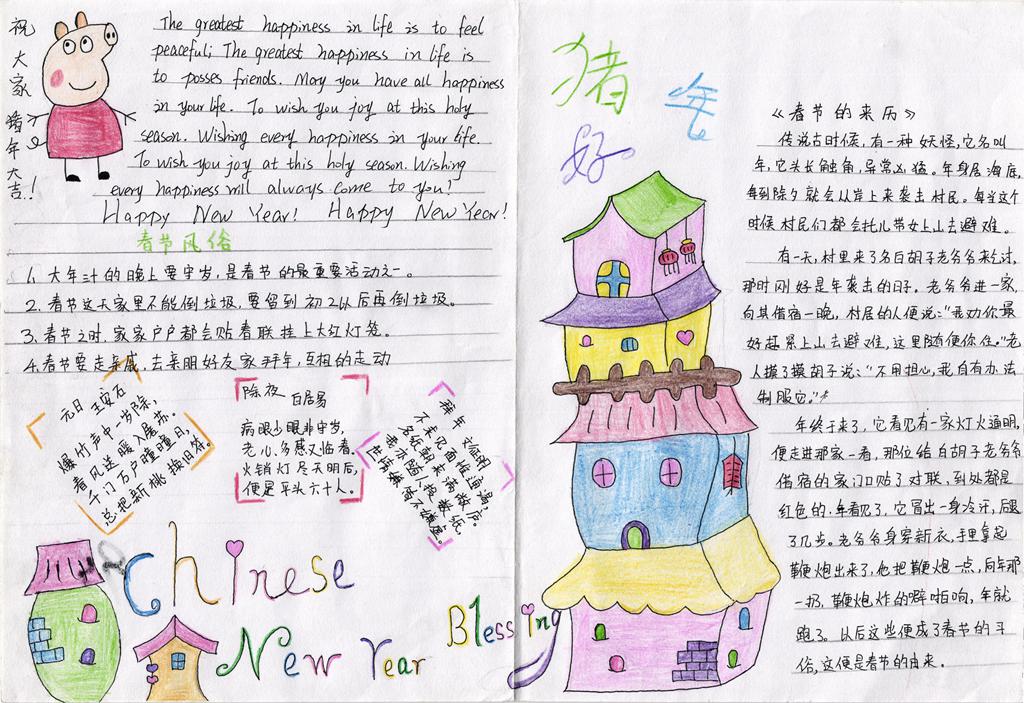 祝大家猪年大吉!
The greatest happiness in life is to feel
peaceful; The greatest happiness in life is
to posses friends. May you have all happiness
in your life. To wish you joy at this holy
season. Wishing every happiness in your life.
To wish you joy at this holy season. Wishing
every happiness will always come to you!
Happy New Year! Happy New Year!
春节风俗
1. 大年三十的晚上要守岁,是春节的最重要活动之一。
2. 春节这天家里不能倒垃圾,要留到初2以后再倒垃圾。
3. 春节之时,家家户户都会贴春联挂上大红灯笼。
4. 春节要走亲戚,去亲朋好友家拜年,互相的走动
元日 王安石
爆竹声中一岁除,
春风送暖入屠苏。
千门万户曈曈日,
总把新桃换旧符。
除夜
白居易
病眼少眠非守岁,
老心多感又临春。
火销灯尽天明后,
便是平头六十人。
拜年 文征明
不求见面惟通谒,
名纸朝来满敝庐。
我亦随人投数纸,
世情嫌简不嫌虚。
Chinese
New Year
Blessing
猪年
好
《春节的来历》
传说古时候,有一种妖怪,它名叫
年,它头长触角,异常凶猛。年身居海底,
每到除夕就会从岸上来袭击村民。每当这个
时候村民们都会托儿带女上山去避难。
有一天,村里来了名白胡子老爷爷来乞讨,
那时刚好是年袭击的日子。老爷爷进一家,
向其借宿一晚,村居的人便说:“我劝你最
好赶紧上山去避难,这里随便你住。”老
人摸了摸胡子说:“不用担心,我自有办法
制服它。”
年终于来了,它看见有一家灯火通明,
便走进那家一看,那位给白胡子老爷爷
借宿的家门口贴了对联,到处都是
红色的,年看见了,它冒出一身冷汗,后退
了几步。老爷爷身穿新衣,手里拿起
鞭炮出来了,他把鞭炮一点,向年那
一扔,鞭炮炸的噼啪响,年就
跑了。以后这些便成了春节的习
俗,这便是春节的由来。